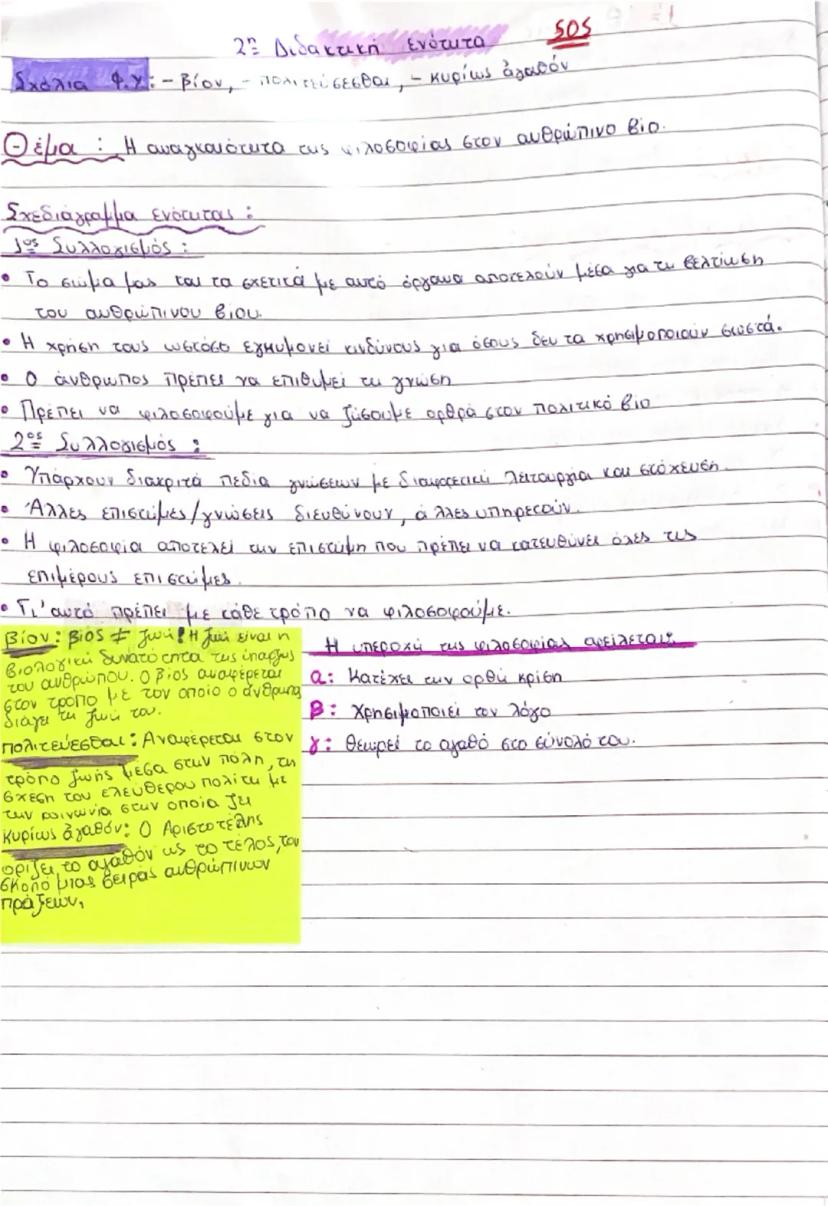 2η Διδακτική ενότητα SOS
Σχόλια Φ.Υ: - βίον, - πολιτεύεσθαι, - κυρίως ἀγαθόν
Θέμα: Η αναγκαιότητα της φιλοσοφίας στον ανθρώπινο βίο.
Σχεδιάγραμμα ενότητας:
1ος Συλλογισμός:
• Το σώμα μας και τα σχετικά με αυτό όργανα αποτελούν μέσα για τη βελτίωση
του ανθρώπινου βίου.
• Η χρήση τους ωστόσο εγκυμονεί κινδύνους για όσους δεν τα χρησιμοποιούν σωστά.
• Ο άνθρωπος πρέπει να επιθυμεί τη γνώση
• Πρέπει να φιλοσοφούμε για να ζήσουμε ορθά στον πολιτικό βίο
2ος Συλλογισμός:
• Υπάρχουν διακριτά πεδία γνώσεων με διαφορετική λειτουργία και στόχευση.
• Άλλες επιστήμες/γνώσεις διευθύνουν, άλλες υπηρετούν.
• Η φιλοσοφία αποτελεί την επιστήμη που πρέπει να κατευθύνει όλες τις
επιμέρους επιστήμες.
• Γι' αυτό πρέπει με κάθε τρόπο να φιλοσοφούμε.
βίον: βίος ≠ ζωή! Η ζωή είναι η
βιολογική δυνατότητα της ύπαρξης
του ανθρώπου. Ο βίος αναφέρεται
στον τρόπο με τον οποίο ο άνθρωπος
διάγει τη ζωή του.
πολιτεύεσθαι: Αναφέρεται στον
τρόπο ζωής μέσα στην πόλη, τη
σχέση του ελεύθερου πολίτη με
την κοινωνία στην οποία ζει
κυρίως ἀγαθόν: Ο Αριστοτέλης
ορίζει το αγαθόν ως το τέλος, τον
σκοπό μιας σειράς ανθρώπινων
πράξεων,
Η υπεροχή της φιλοσοφίας οφείλεται:
α: Κατέχει την ορθή κρίση
β: Χρησιμοποιεί τον λόγο
γ: Θεωρεί το αγαθό στο σύνολό του.